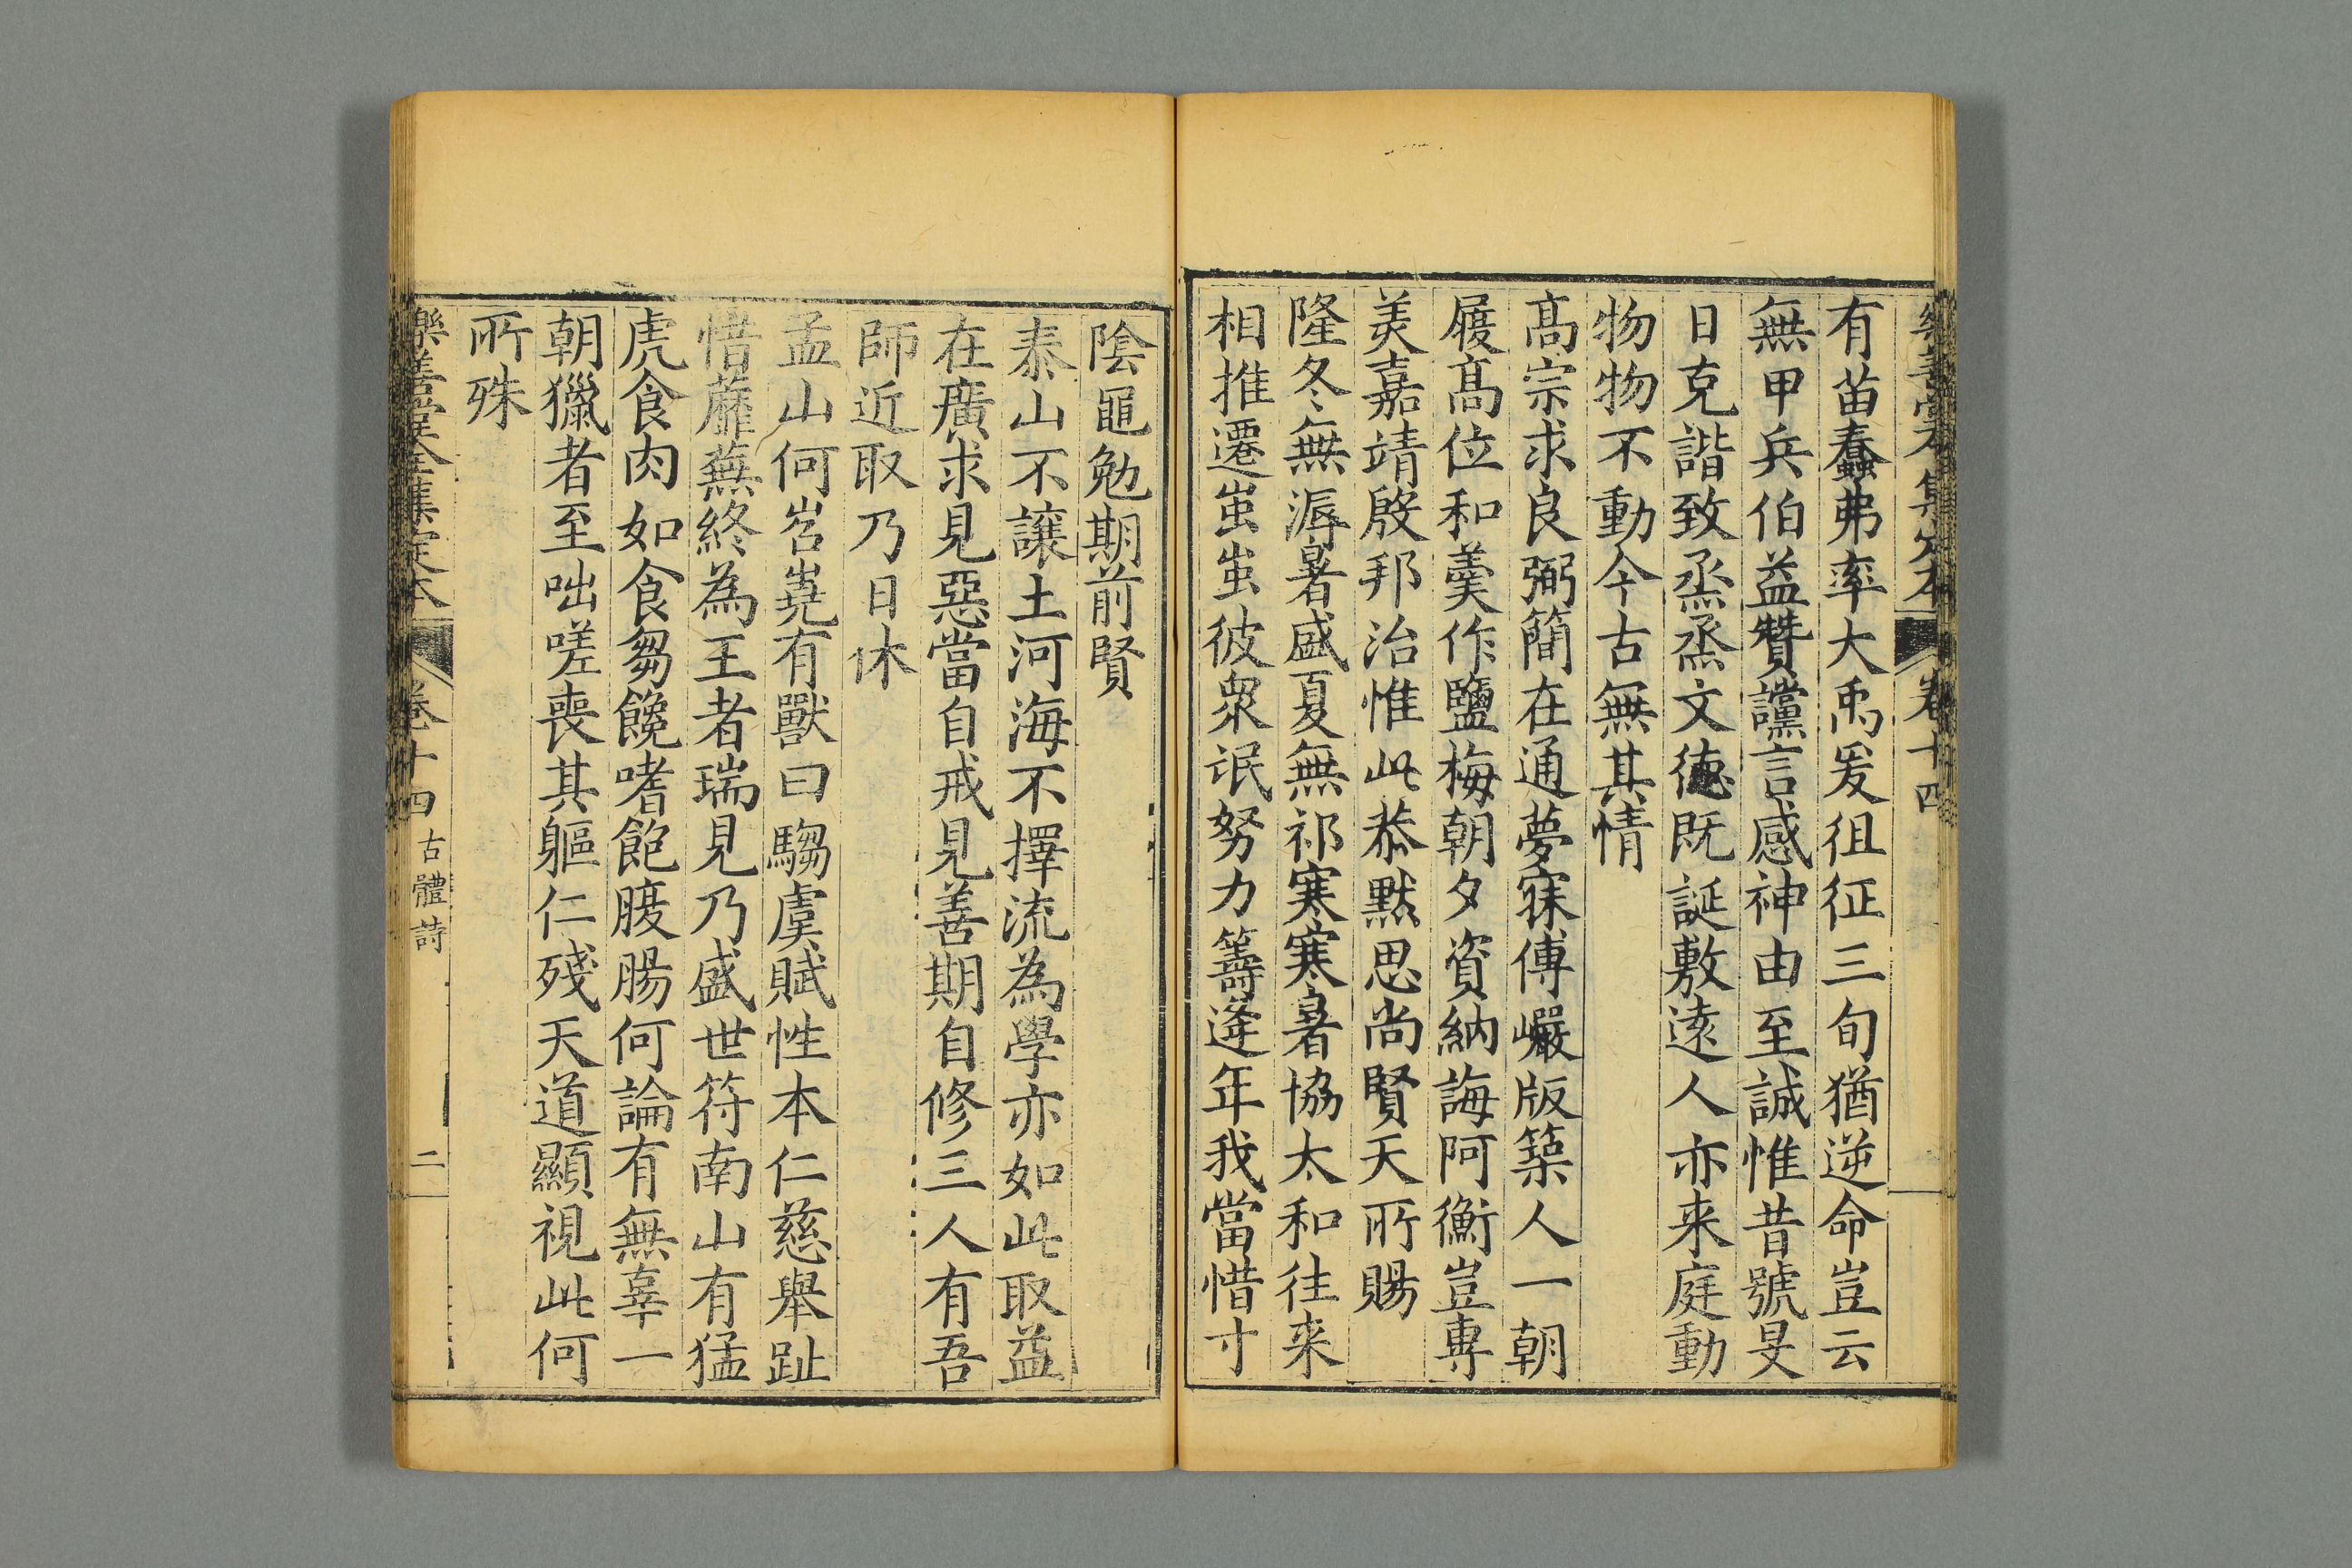 有苗蠢弗率大禹爰徂征三旬猶逆命豈云
無甲兵伯益贊讜言感神由至誠惟昔號旻
日克諧致烝烝文德既誕敷遠人亦来庭動
物物不動今古無其情
高宗求良弼簡在通夢寐傅巖版築人一朝
履高位和羹作鹽梅朝夕資納誨阿衡豈專
美嘉靖殷邦治惟此恭默思尚賢天所賜
隆冬無溽暑盛夏無祁寒寒暑協太和往来
相推遷蚩蚩彼衆氓努力籌逢年我當惜寸
陰黽勉期前賢
泰山不讓土河海不擇流為學亦如此取益
在廣求見惡當自戒見善期自修三人有吾
師近取乃日休
孟山何岧嶤有獸曰騶虞賦性本仁慈舉趾
惜蘼蕪終為王者瑞見乃盛世符南山有猛
虎食肉如食芻饞嗜飽腹腸何論有無辜一
朝獵者至咄嗟喪其軀仁殘天道顯視此何
所殊
樂善堂全集定本 卷十四 古體詩 二